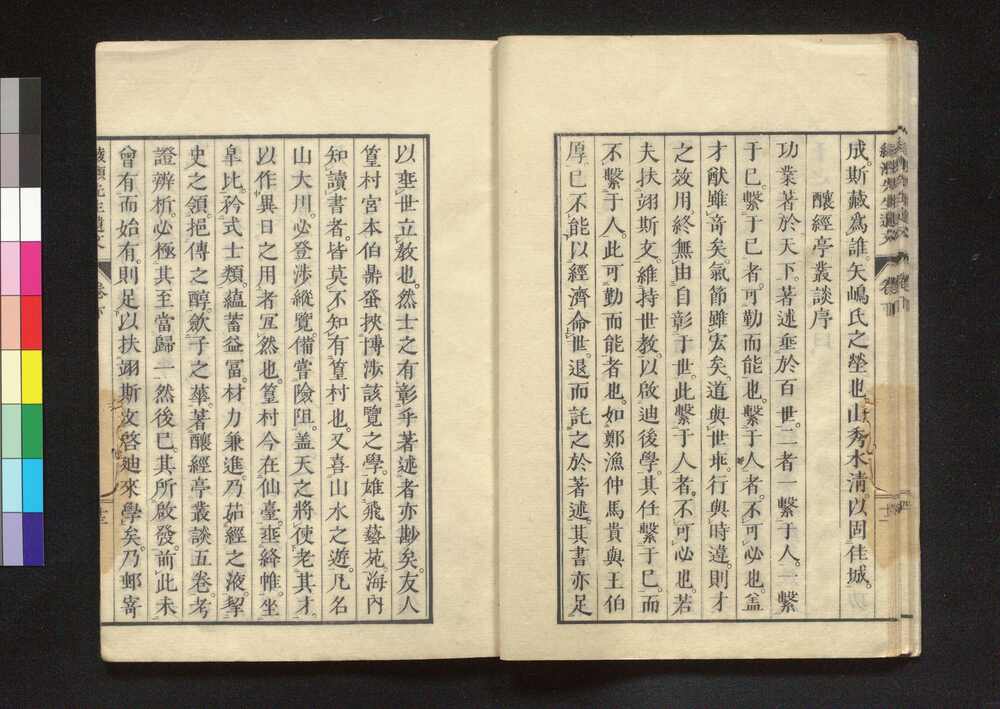 成。斯藏為誰。矢嶋氏之塋也。山秀水清。以固佳城。
釀經亭叢談序
功業著於天下。著述垂於百世。二者一繫于人。一繫
于己。繫于己者。可勤而能也。繫于人者。不可必也。盖
才猷雖奇矣。氣節雖宏矣。道與世乖。行與時違。則才
之效用。終無由自彰于世。此繫于人者。不可必也。若
夫扶翊斯文。維持世教。以啟迪後學。其任繫于己。而
不繫于人。此可勤而能者也。如鄭漁仲馬貴與王伯
厚。已不能以經濟命世。退而託之於著述。其書亦足
以垂世立教也。然士之有彰乎著述者亦尠矣。友人
篁村宮本伯鼎蚤挾博渉該覽之學。雄飛藝苑。海內
知讀書者。皆莫不知有篁村也。又喜山水之遊。凡名
山大川。必登渉縱覽備嘗險阻。盖天之將使老其才。
以作異日之用者冝然也。篁村今在仙臺。垂絳帷。坐
皐比。矜式士類。蘊蓄益冨。材力兼進。乃茹經之液。挈
史之領。挹傳之醇。歛子之華。著釀經亭叢談五卷。考
證辨析。必極其至當歸一然後已。其所啟發。前此未
曾有而始有。則足以扶翊斯文啓迪來學矣。乃郵寄
先生遺文 卷下 十三